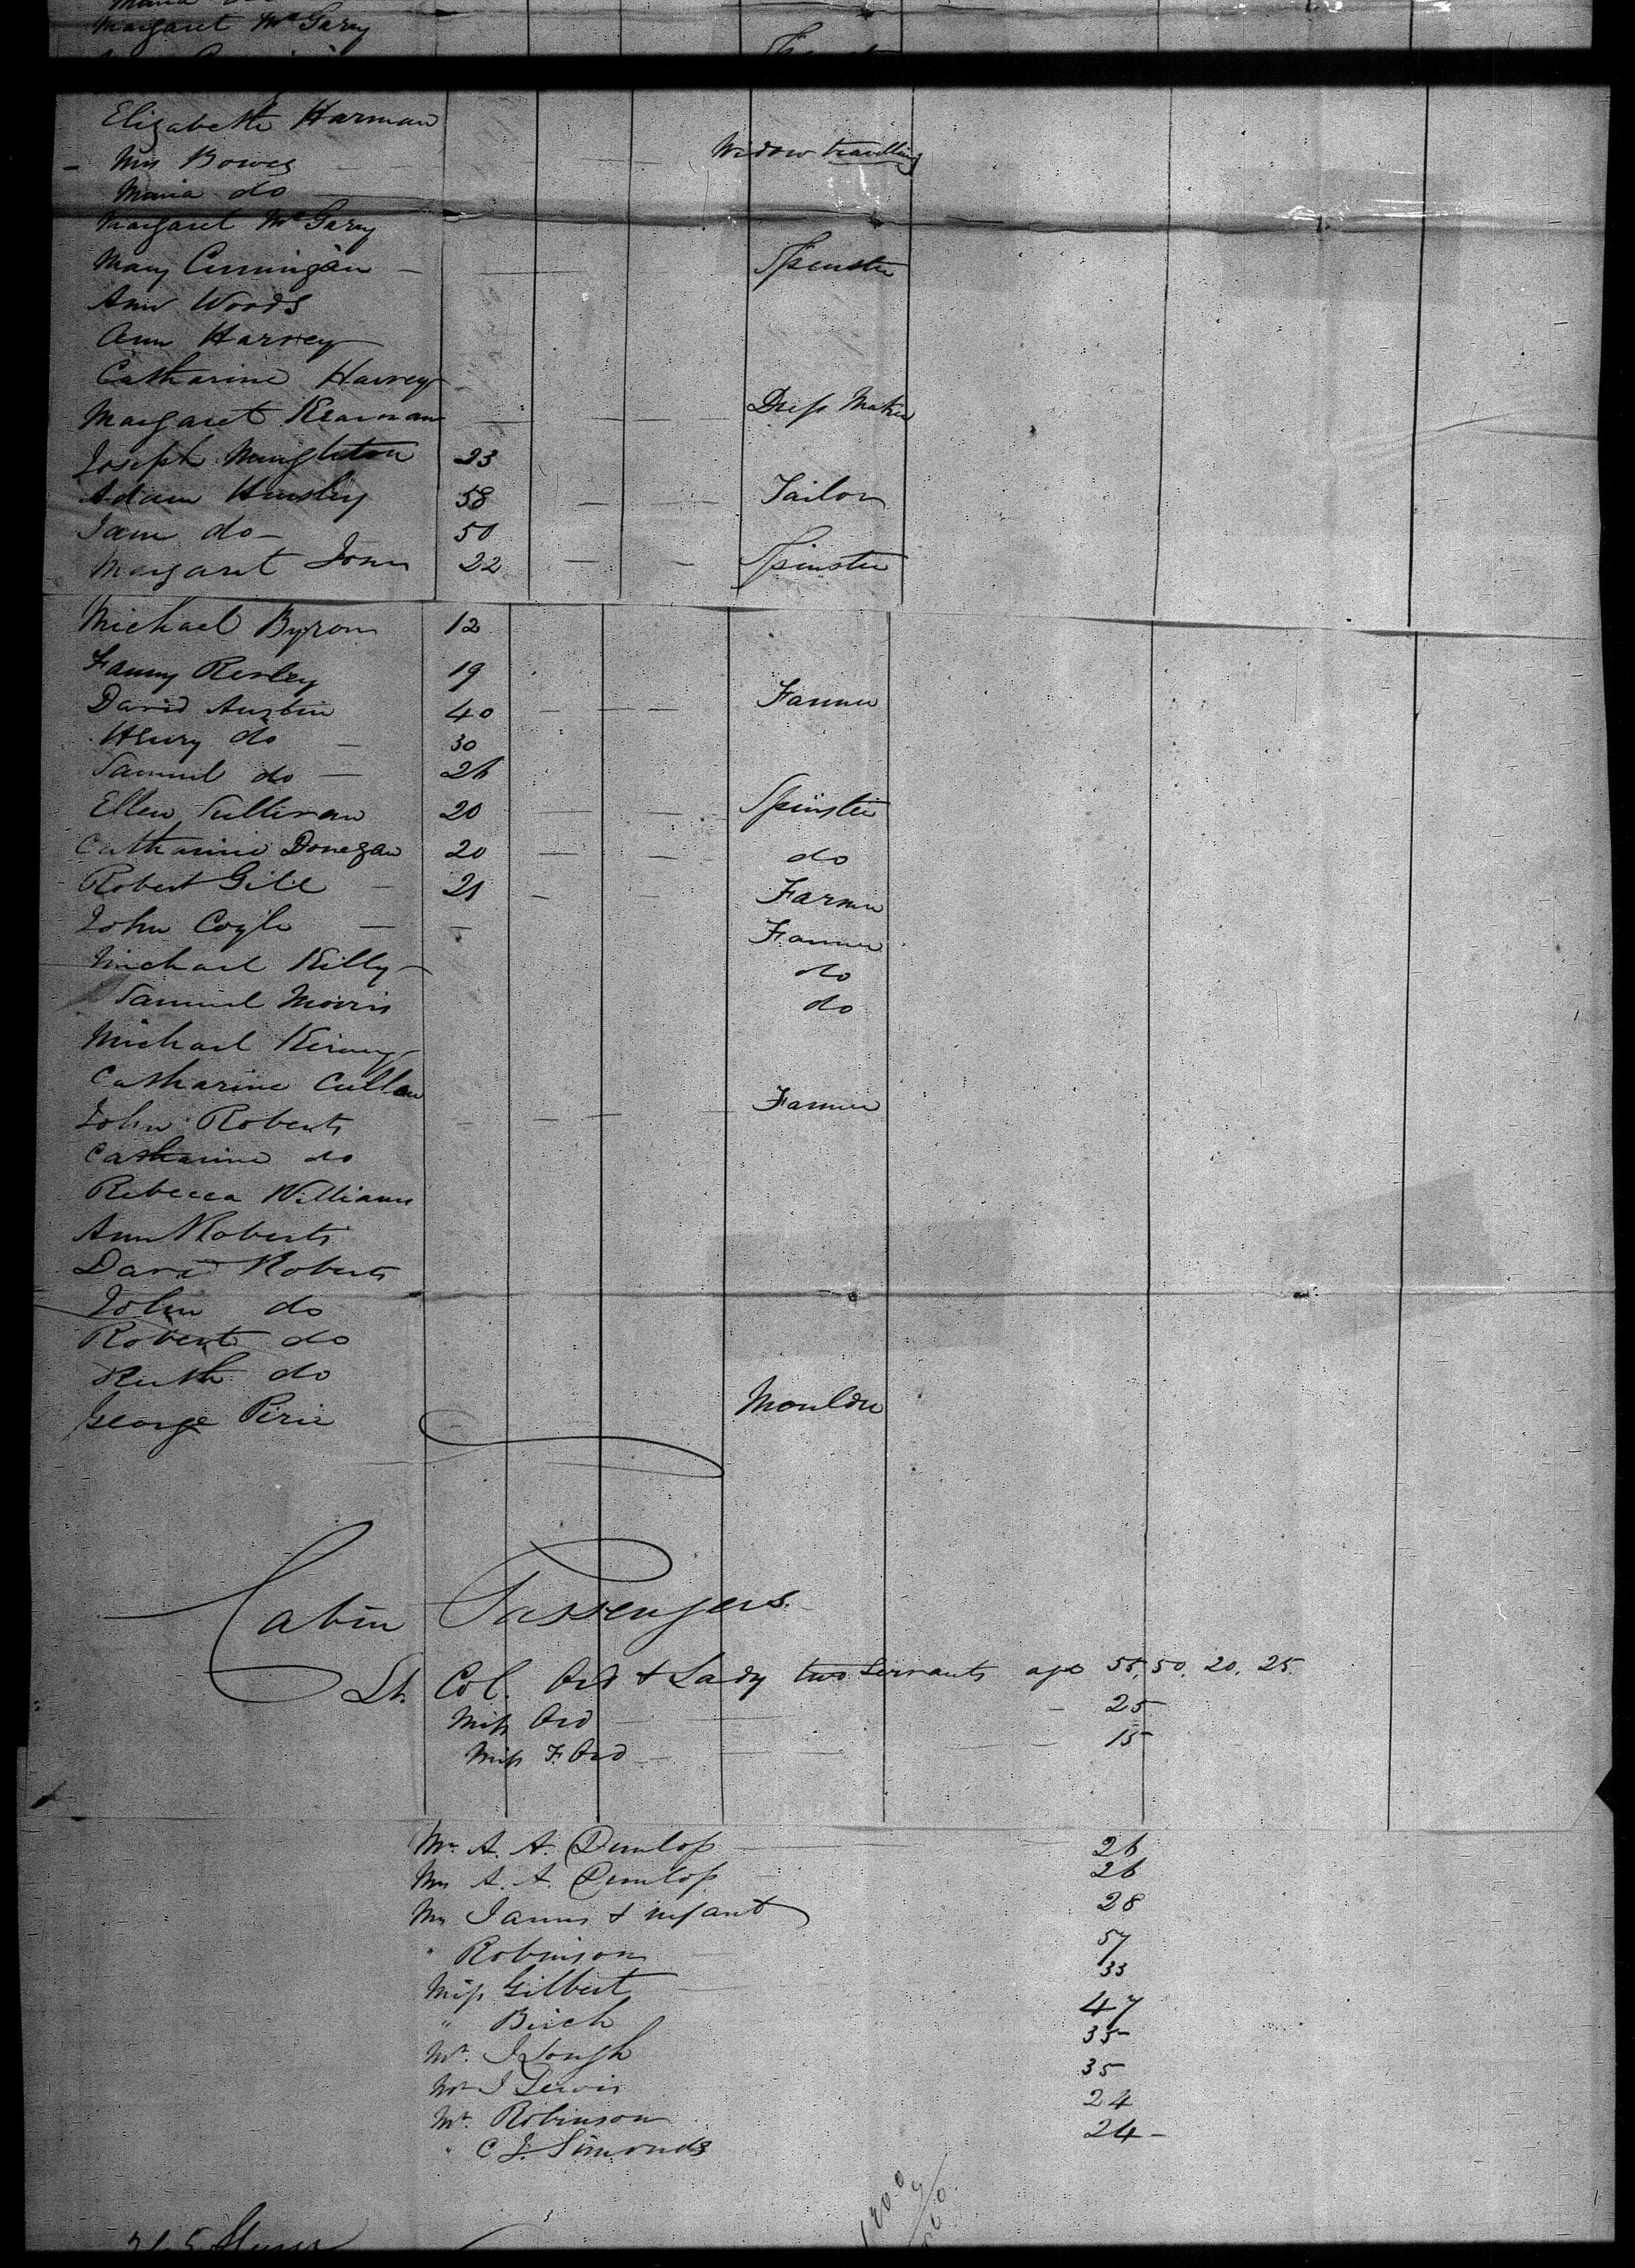 Margaret McGary
Elizabeth Harman
Mrs Bowes Widow travelling
Maria do
Margaret McGary
Mary Cunningan Spinster
Ann Woods
Ann Harvey
Catharine Harvey
Margaret Kearnan Dress Maker
Joseph Mughleton 23
Adam Hursley 58 Tailor
Jane do 50
Margaret Jones 22 Spinster
Michael Byron 12
Fanny Resley 19
David Austin 40 Farmer
Henry do 30
Samuel do 26
Ellen Sullivan 20 Spinster
Catharine Donegan 20 do
Robert Gill 21 Farmer
John Coyle Farmer
Michael Killy do
Samuel Morris do
Michael
Catharine Cullen
John Roberts Farmer
Catharine do
Rebecca Williams
Ann Roberts
David Roberts
John do
Robert do
Ruth do
George Pirie Moulder
Cabin Passengers
Lt. Col. Ord & Lady two Servants age 55, 50, 20, 25
Miss Ord 25
Miss F. Ord 15
Mr A. A. Dunlop 26
Mrs A. A. Dunlop 26
Mrs James & infant 28
" Robinson 57
Miss Gilbert 33
" Birch 47
Mr. J Lough 35
Mr J Lewis 35
Mr. Robinson 24
" C J. Simonds 24